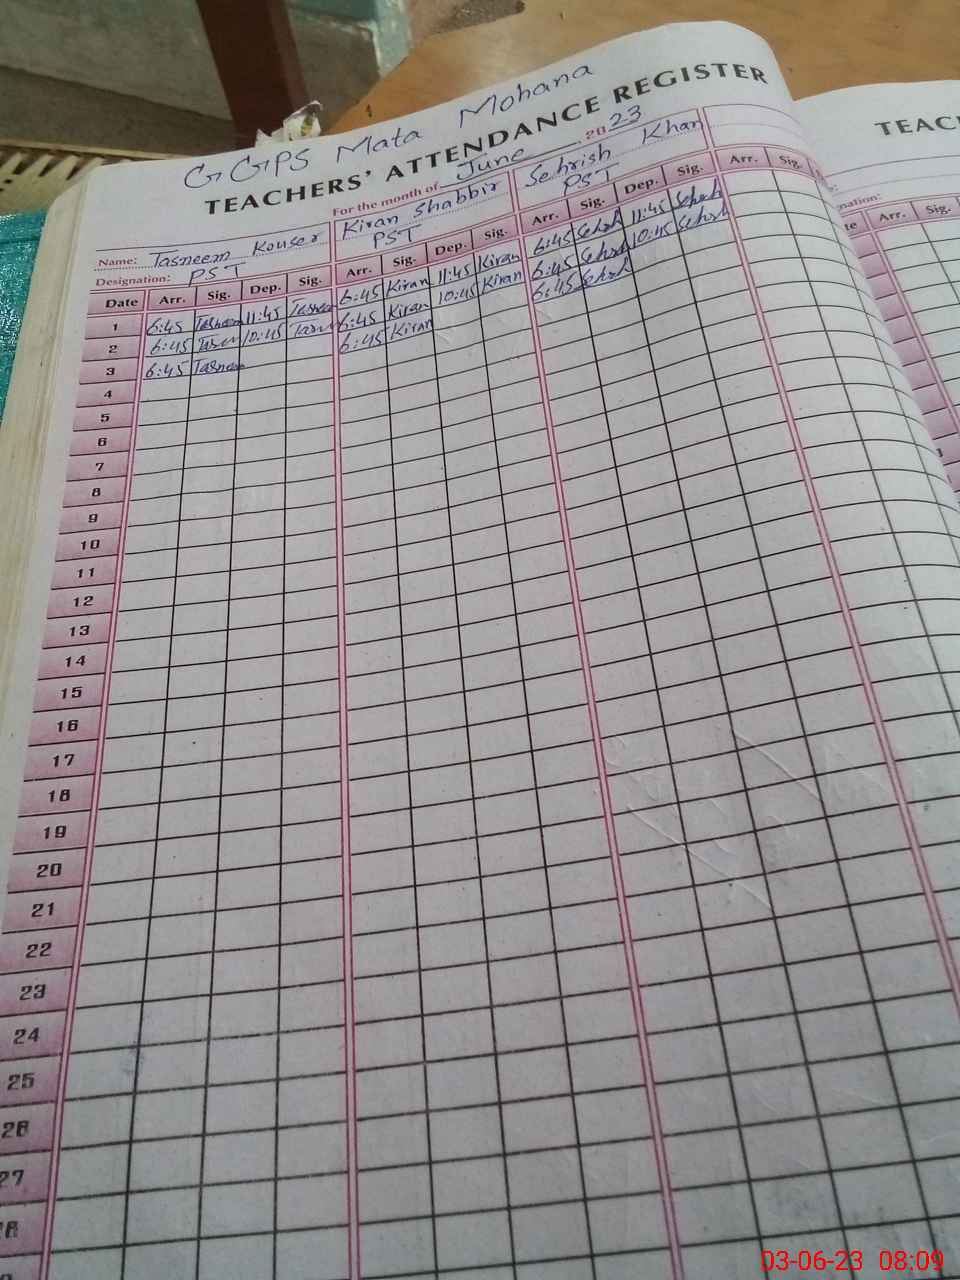 GGPS Mata Mohana
TEACHERS' ATTENDANCE REGISTER
For the month of June 2023
Name: Tasneem Kouser Kiran Shabbir Sehrish Khan
Designation: PST PST PST
Date Arr. Sig. Dep. Sig. Arr. Sig. Dep. Sig. Arr. Sig. Dep. Sig. Arr. Sig.
1 6:45 Tasneem 11:45 Tasneem 6:45 Kiran 11:45 Kiran 6:45 Sehrsh 11:45 Sehrsh
2 6:45 10:45 6:45 Kiran 10:45 Kiran 6:45 Sehrsh 10:45 Sehrsh
3 6:45 Tasneem 6:45 Kiran 6:45 Sehrsh
4
5
6
7
8
9
10
11
12
13
14
15
16
17
18
19
20
21
22
23
24
25
26
27
TEAC
nation:
Arr. Sig.
03-06-23 08:09